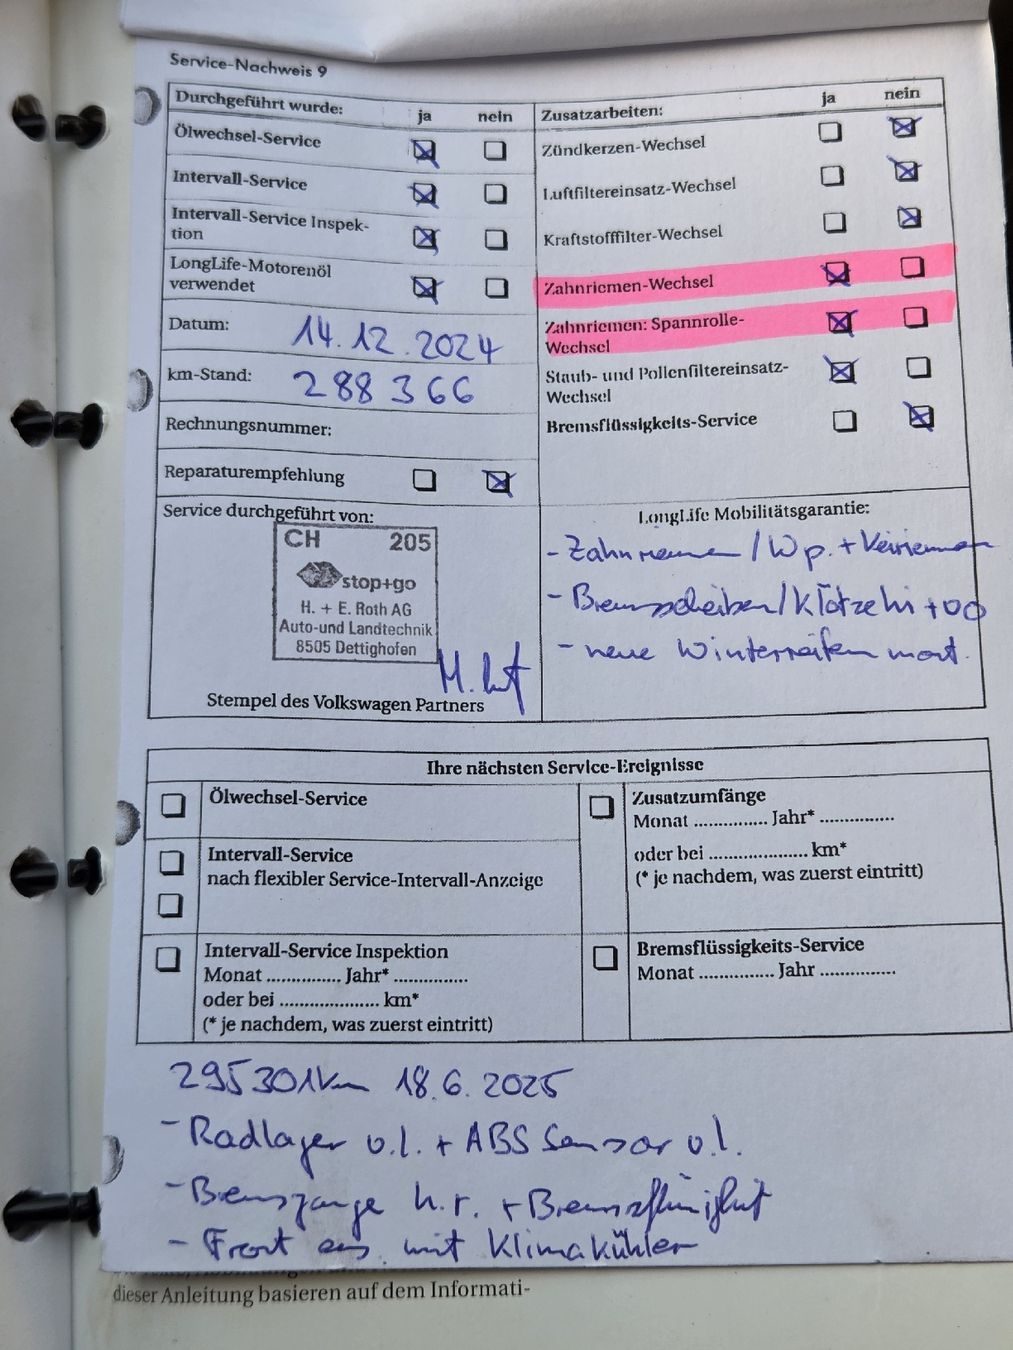 Service-Nachweis 9
Durchgeführt wurde: ja nein
Ölwechsel-Service
Intervall-Service
Intervall-Service Inspek-
tion
LongLife-Motorenöl
verwendet
Datum: 14.12.2024
km-Stand: 288 366
Rechnungsnummer:
Reparaturempfehlung
Service durchgeführt von:
CH 205
stop+go
H. + E. Roth AG
Auto-und Landtechnik
8505 Dettighofen
Stempel des Volkswagen Partners
Zusatzarbeiten: ja nein
Zündkerzen-Wechsel
Luftfiltereinsatz-Wechsel
Kraftstofffilter-Wechsel
Zahnriemen-Wechsel
Zahnriemen: Spannrolle-
Wechsel
Staub- und Pollenfiltereinsatz-
Wechsel
Bremsflüssigkeits-Service
LongLife Mobilitätsgarantie:
- Zahnriemen / Wp. + Keilriemen
- Bremsscheiben/Klötze hi + vo
- neue Winterreifen mont.
Ihre nächsten Service-Ereignisse
Ölwechsel-Service
Intervall-Service
nach flexibler Service-Intervall-Anzeige
Intervall-Service Inspektion
Monat .............. Jahr* ..............
oder bei ................... km*
(* je nachdem, was zuerst eintritt)
Zusatzumfänge
Monat .............. Jahr* ..............
oder bei ................... km*
(* je nachdem, was zuerst eintritt)
Bremsflüssigkeits-Service
Monat .............. Jahr ..............
295301km 18.6.2025
- Radlager v.l. + ABS Sensor v.l.
- Bremszange h.r. + Bremsflüssigkeit
- Front mit Klimakühler
dieser Anleitung basieren auf dem Informati-